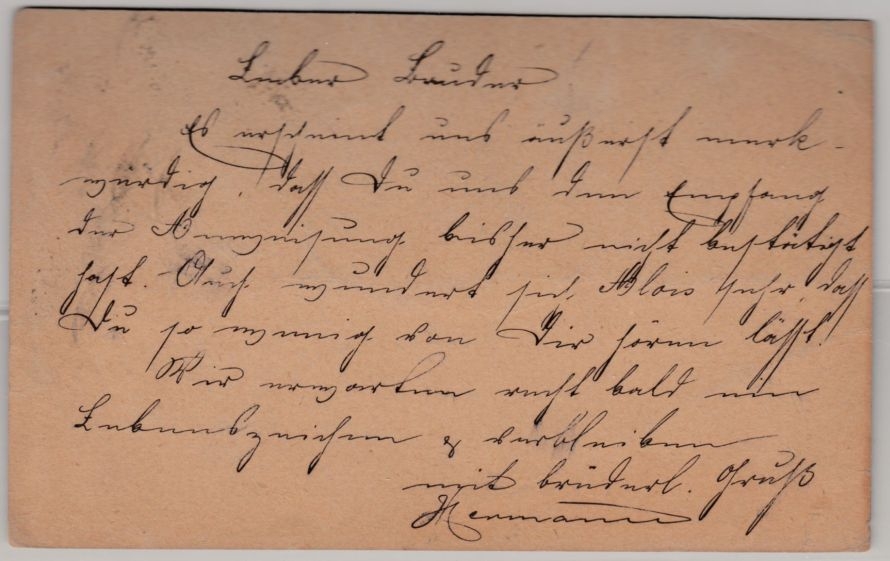 Lieber Bruder
Es erscheint uns äußerst merk-
würdig, daß Du uns den Empfang
der Anweisung bisher nicht bestätigt
hast. Auch wundert sich Alois sehr, daß
Du so wenig von Dir hören läßt.
Wir erwarten recht bald ein
Lebenszeichen & verbleiben
mit brüderl. Gruß
Hermann